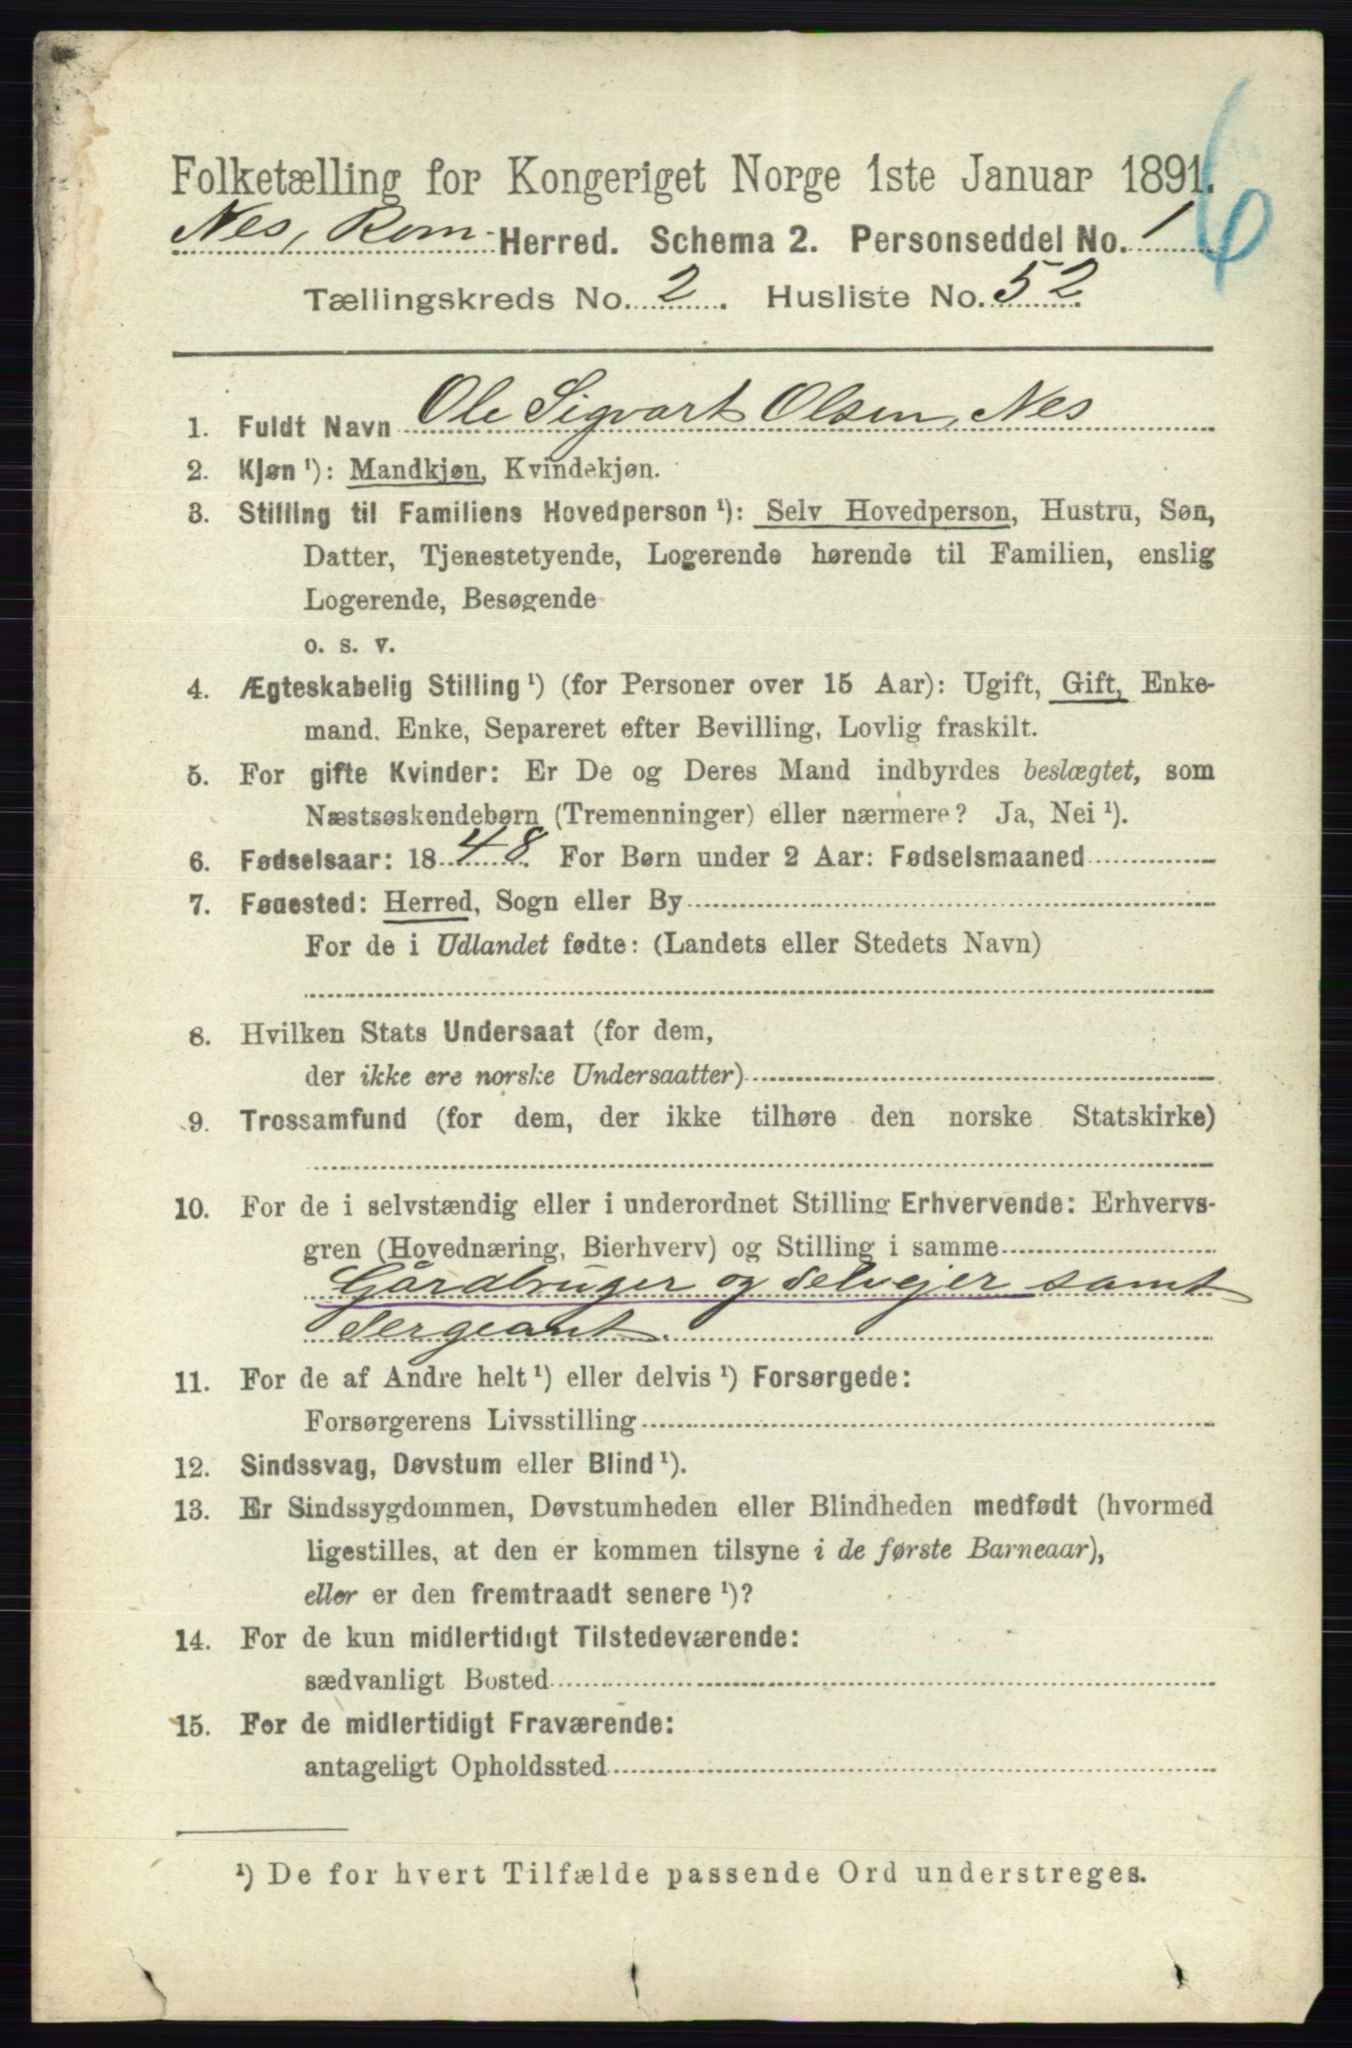 Folketælling for Kongeriget Norge 1ste Januar 1891.
6
Nes, Rom. Herred. Schema 2. Personseddel No. 1
Tællingskreds No. 2. Husliste No. 52.
1. Fuldt Navn Ole Sigvart Olsen, Nes
2. Kjøn ¹): Mandkjøn, Kvindekjøn.
3. Stilling til Familiens Hovedperson ¹): Selv Hovedperson, Hustru, Søn,
Datter, Tjenestetyende, Logerende hørende til Familien, enslig
Logerende, Besøgende
o. s. v.
4. Ægteskabelig Stilling ¹) (for Personer over 15 Aar): Ugift, Gift, Enke-
mand, Enke, Separeret efter Bevilling, Lovlig fraskilt.
5. For gifte Kvinder: Er De og Deres Mand indbyrdes beslægtet, som
Næstsøskendebørn (Tremenninger) eller nærmere? Ja, Nei ¹).
6. Fødselsaar: 1848. For Børn under 2 Aar: Fødselsmaaned
7. Fødested: Herred, Sogn eller By
For de i Udlandet fødte: (Landets eller Stedets Navn)
8. Hvilken Stats Undersaat (for dem,
der ikke ere norske Undersaatter)
9. Trossamfund (for dem, der ikke tilhøre den norske Statskirke)
10. For de i selvstændig eller i underordnet Stilling Erhvervende: Erhvervs-
gren (Hovednæring, Bierhverv) og Stilling i samme
Gårdbruger og selvejer samt
Sergeant.
11. For de af Andre helt ¹) eller delvis ¹) Forsørgede:
Forsørgerens Livsstilling
12. Sindssvag, Døvstum eller Blind ¹).
13. Er Sindssygdommen, Døvstumheden eller Blindheden medfødt (hvormed
ligestilles, at den er kommen tilsyne i de første Barneaar),
eller er den fremtraadt senere ¹)?
14. For de kun midlertidigt Tilstedeværende:
sædvanligt Bosted
15. For de midlertidigt Fraværende:
antageligt Opholdssted
¹) De for hvert Tilfælde passende Ord understreges.